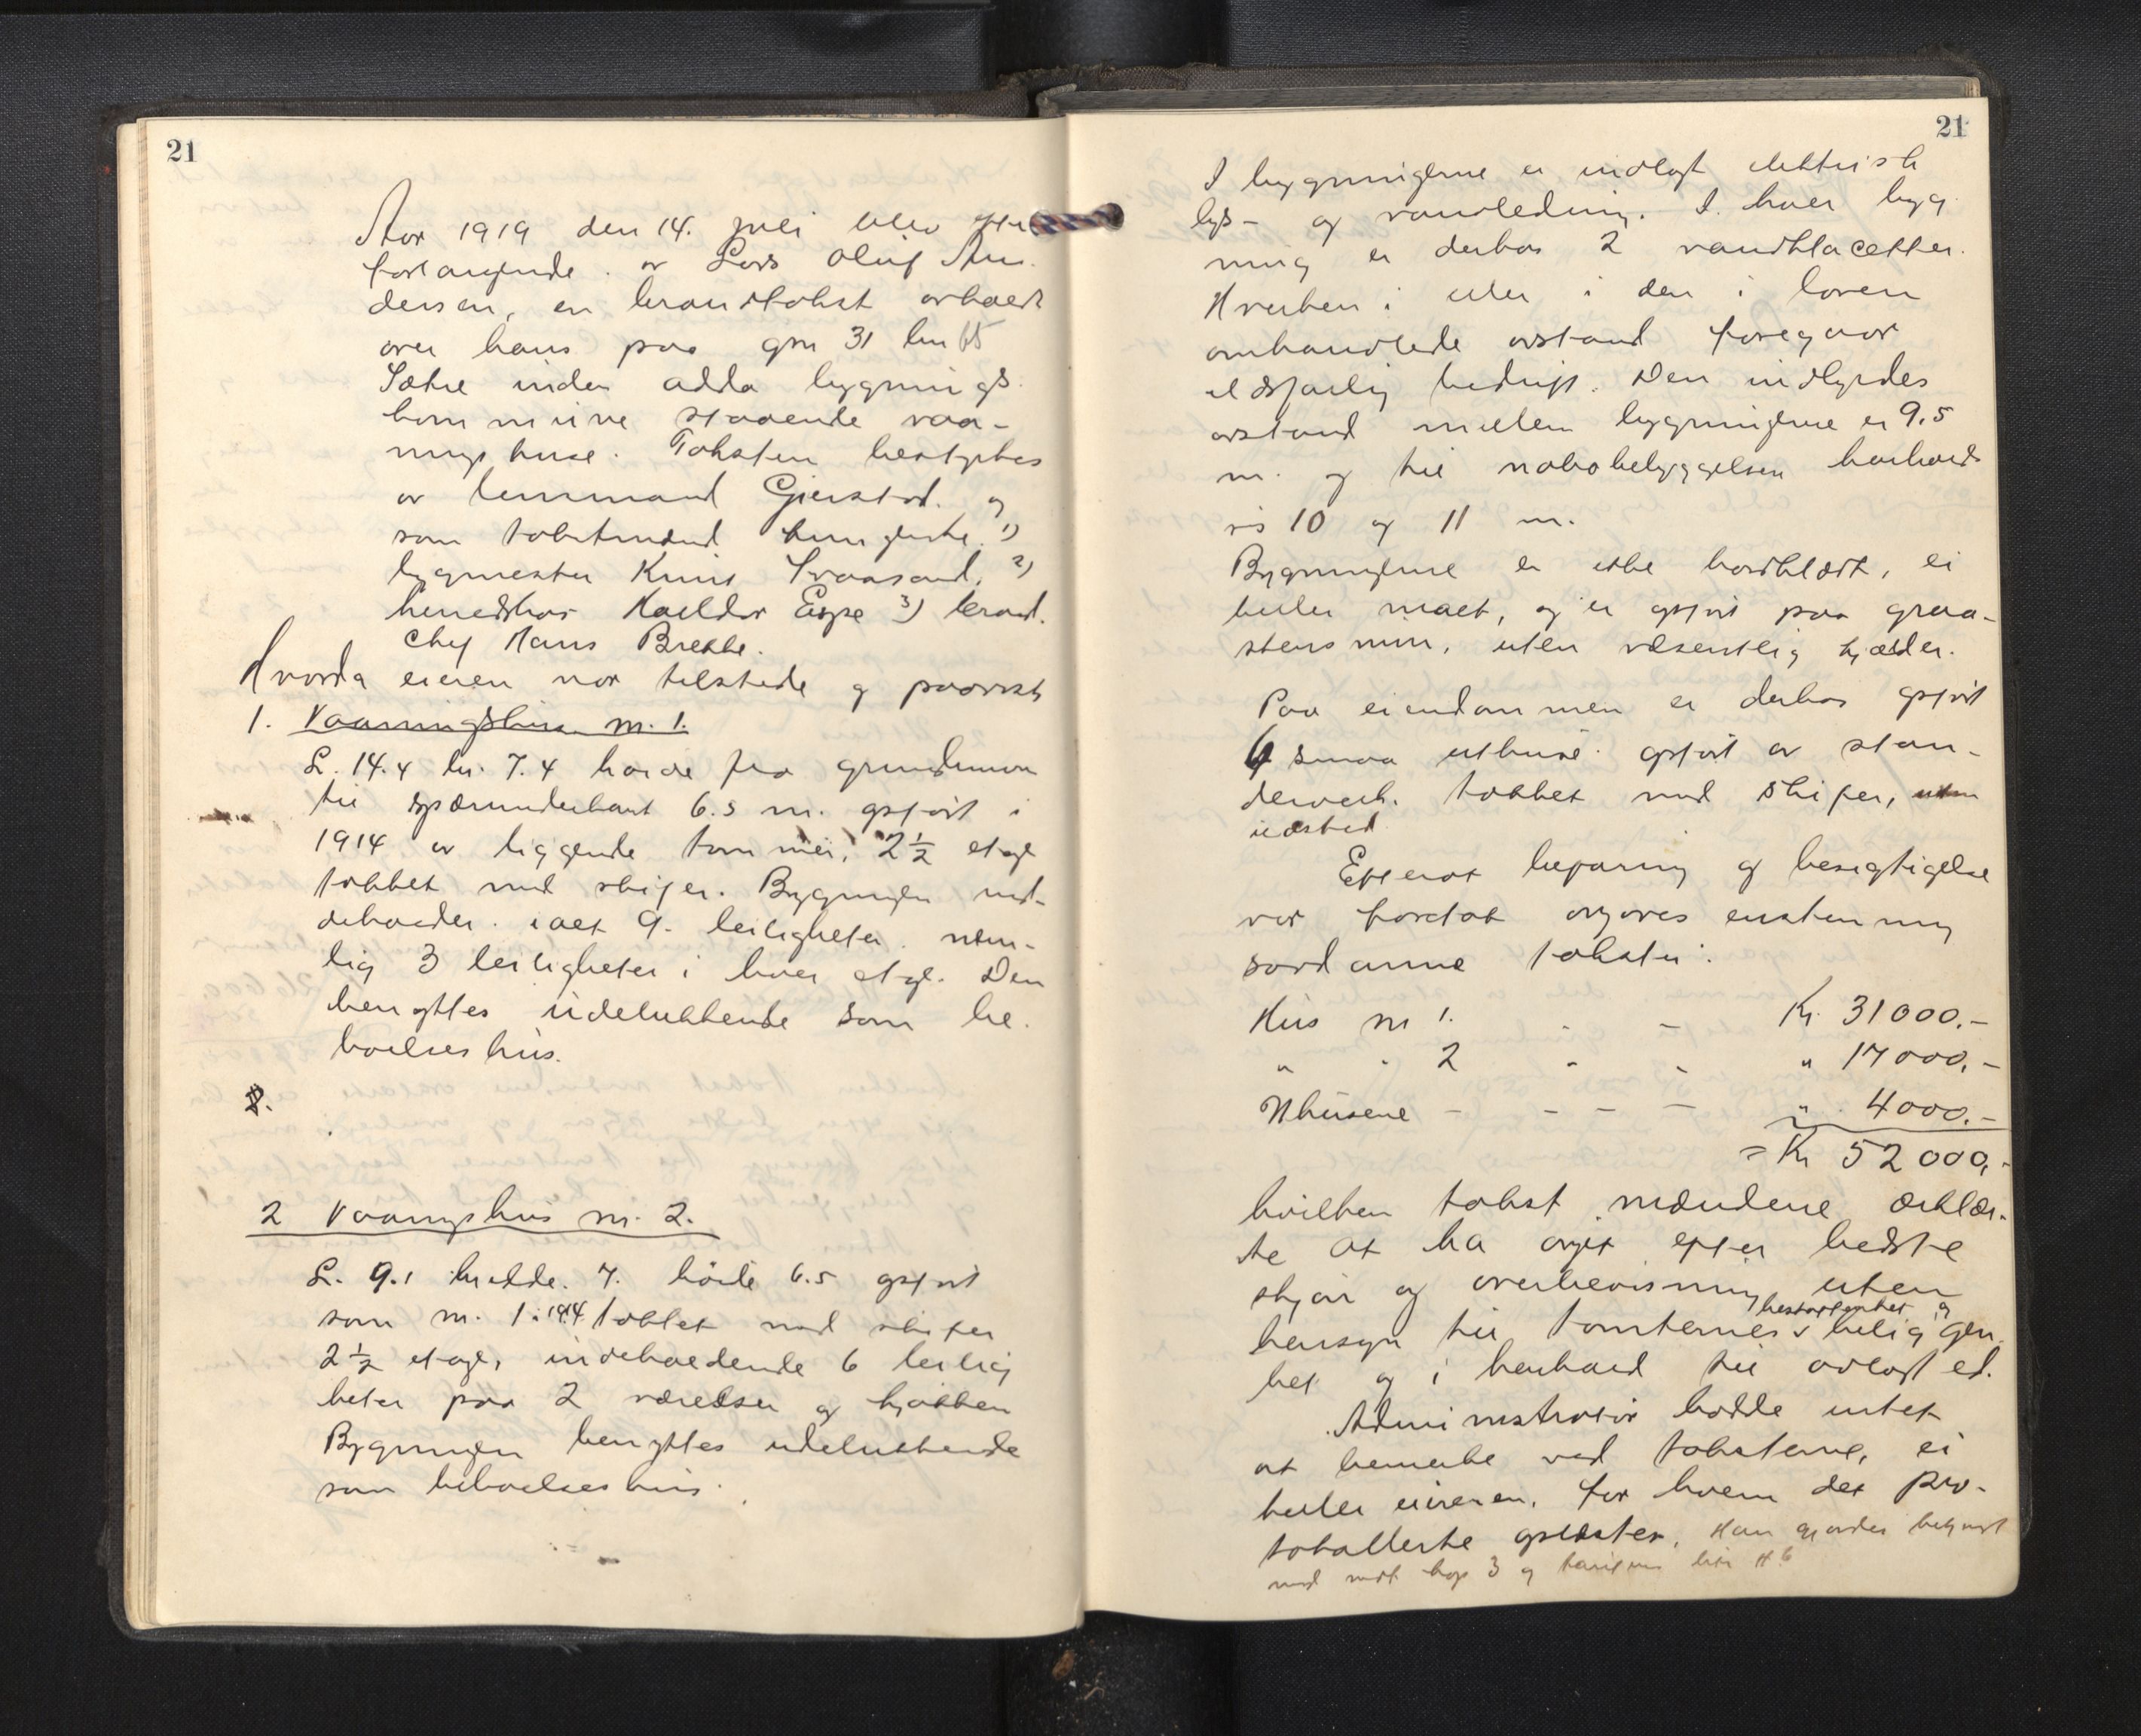 21
Aar 1919 den 14. juli blev efter
forlangende av Lars Oluf An-
dersen, en brandtakst avholdt
over hans paa gnr 31 bnr 65
Sætre inden Odda bygnings
kommune staaende vaa-
ningshuse. Taksten bestyrtes
av lensmand Gjerstad og
som takstmænd fungerte 1)
bygmester Knut Svaasand, 2)
herredskas. Haldor Espe 3) brand.
chef Hans Brekke.
Hvorda eieren var tilstede og paavist
1. Vaaningshus nr. 1.
L. 14.4 br. 7.4 høide fra grundmur
til spærunderkant 6.5 m. opført i
1914 av liggende tømmer, 2½ etage
tækket med skifer. Bygningen ind-
deholder ialt 9 leiligheter nem-
lig 3 leiligheter i hver etage. Den
benyttes udelukkende som be-
boelseshus.
2.
2 Vaaningshus nr. 2.
L. 9.1 bredde 7. höide 6.5 opført
som nr. 1 i 1914 tækket med skifer
2½ etage, indeholdende 6 leilig
heter paa 2 værelser og kjøkken
Bygningen benyttes udelukkende
som beboelseshus.
21
I bygningerne er indlagt elektrisk
lys- og vandledning. I hver byg
ning er derhos 2 vandklacetter.
Hverken i eller i den i loven
omhandlede avstand foregaar
eldsfarlig bedrift. Den indbyrdes
avstand mellem bygningerne er 9.5
m. og til nabobebyggelsen henholds
vis 10 og 11 m.
Bygningerne er ikke bordklædt, ei
heller malt, og er opført paa graa-
stensmur, uten væsentlig kjælder.
Paa eiendommen er derhos opført
6 smaa uthuse opført av stan-
derverk. tækket med skifer, uten
ildsted
Efterat befaring og besigtigelse
var foretat avgaves enstemmig
saadanne takster:
Hus nr 1. - - Kr. 31000.-
" " 2 - - " 17000,-
Uthusene - - - - " 4000.-
= Kr 52000,-
hvilken takst mændene erklær-
te at ha avgit efter bedste
skjøn og overbevisning uten
hensyn til tomternes beskaffenhet og belig gen
het og i henhold til avlagt ed.
Administrator hadde intet
at bemerke ved taksterne, ei
heller eieren, for hvem det pro-
tokollerte oplæstes. Han gjordes bekjendt
med mdt kap 3 og tarifens litr H 6